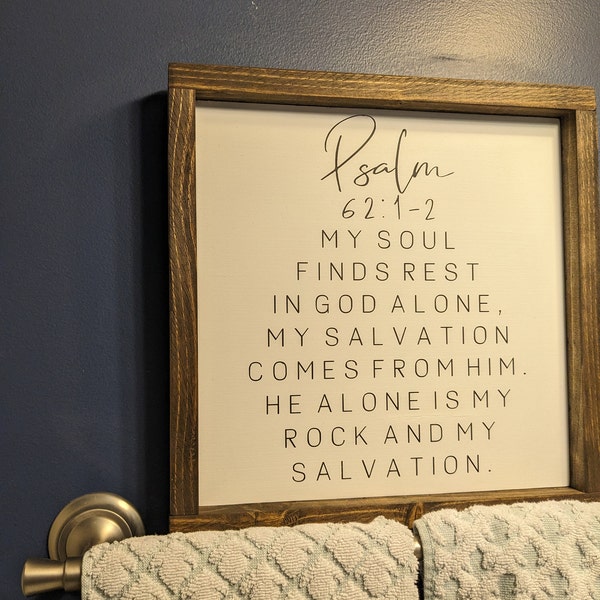 Psalm
62:1-2
MY SOUL
FINDS REST
IN GOD ALONE,
MY SALVATION
COMES FROM HIM.
HE ALONE IS MY
ROCK AND MY
SALVATION.